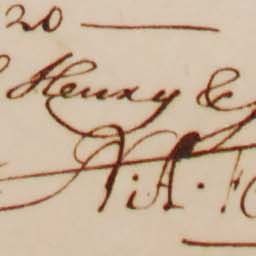 20
Henry &
N. A. F